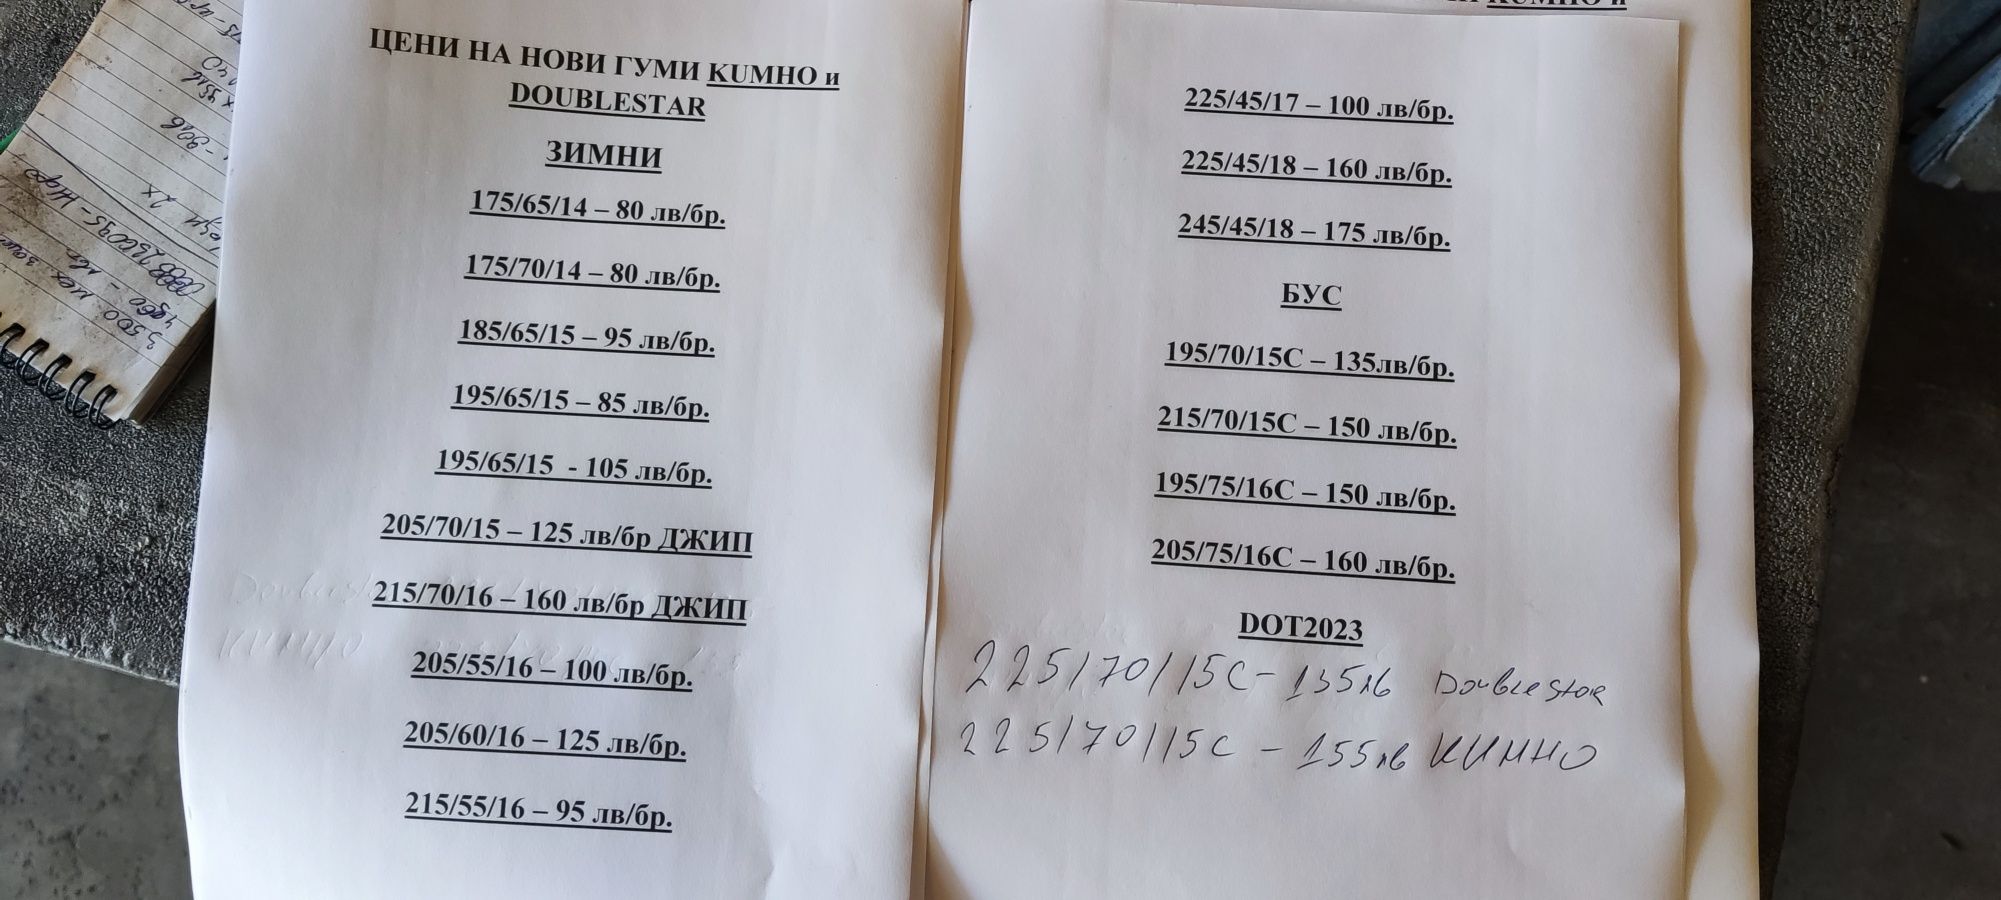 ЦЕНИ НА НОВИ ГУМИ KUMHO и
DOUBLESTAR
ЗИМНИ
175/65/14 – 80 лв/бр.
175/70/14 – 80 лв/бр.
185/65/15 – 95 лв/бр.
195/65/15 – 85 лв/бр.
195/65/15  - 105 лв/бр.
205/70/15 – 125 лв/бр ДЖИП
215/70/16 – 160 лв/бр ДЖИП
205/55/16 – 100 лв/бр.
205/60/16 – 125 лв/бр.
215/55/16 – 95 лв/бр.
KUMHO и
225/45/17 – 100 лв/бр.
225/45/18 – 160 лв/бр.
245/45/18 – 175 лв/бр.
БУС
195/70/15C – 135лв/бр.
215/70/15C – 150 лв/бр.
195/75/16C – 150 лв/бр.
205/75/16C – 160 лв/бр.
DOT2023
225/70/15C – 135лв Doublestar
225/70/15C – 155лв КИМНО